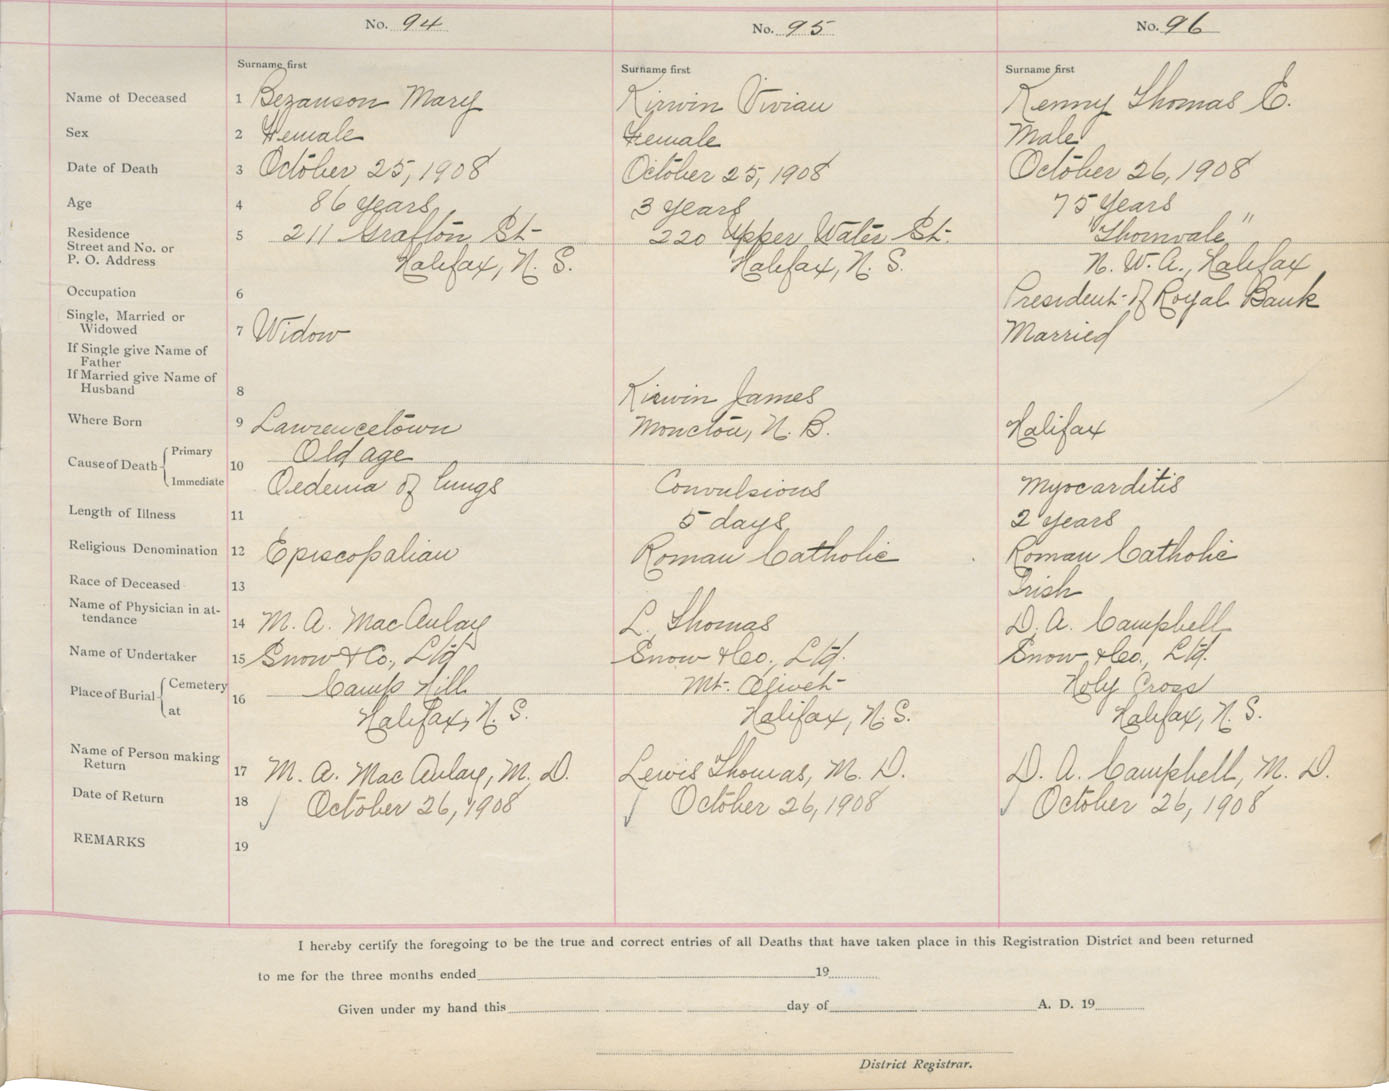 No. 94 No. 95 No. 96
Surname first Surname first Surname first
Name of Deceased 1 Bezanson Mary Kirwin Vivian Kenny Thomas E.
Sex 2 Female Female Male
Date of Death 3 October 25, 1908 October 25, 1908 October 26, 1908
Age 4 86 years 3 years 75 years
Residence 5 211 Grafton St- 220 Upper Water St. "Thornvale"
Street and No. or
P. O. Address Halifax, N. S. Halifax, N. S. N. W. A., Halifax
Occupation 6 President of Royal Bank
Single, Married or
Widowed 7 Widow Married
If Single give Name of
Father
If Married give Name of
Husband 8 Kirwin James
Where Born 9 Lawrencetown Moncton, N. B. Halifax
Cause of Death Primary 10 Old age
Immediate Oedema of lungs Convulsions Myocarditis
Length of Illness 11 5 days 2 years
Religious Denomination 12 Episcopalian Roman Catholic Roman Catholic
Race of Deceased 13 Irish
Name of Physician in at-
tendance 14 M. A. MacAulay L. Thomas D. A. Campbell
Name of Undertaker 15 Snow & Co., Ltd Snow & Co., Ltd. Snow & Co., Ltd.
Place of Burial Cemetery 16 Camp Hill Mt. Olivet- Holy Cross
at Halifax, N. S. Halifax, N. S. Halifax, N. S.
Name of Person making
Return 17 M. A. MacAulay, M. D. Lewis Thomas, M. D. D. A. Campbell, M. D.
Date of Return 18 October 26, 1908 October 26, 1908 October 26, 1908
REMARKS 19
I hereby certify the foregoing to be the true and correct entries of all Deaths that have taken place in this Registration District and been returned
to me for the three months ended 19
Given under my hand this day of A. D. 19
District Registrar.